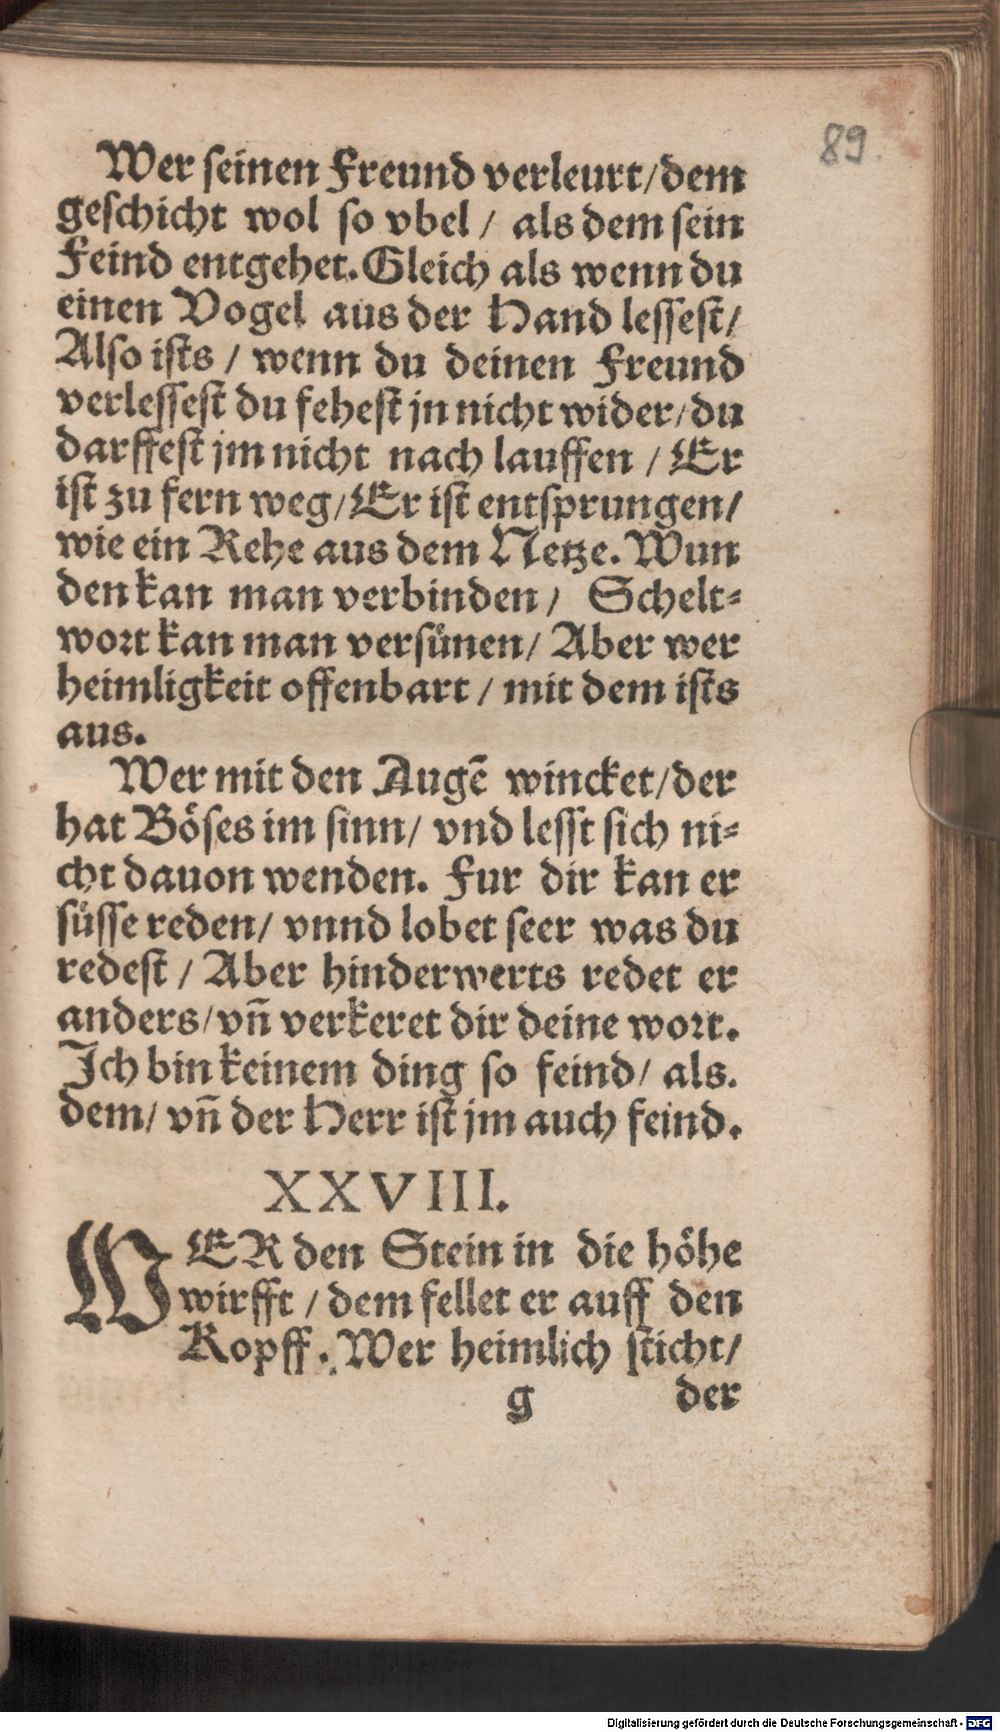 89.
Wer seinen Freund verleurt/dem
geschicht wol so vbel / als dem sein
Feind entgehet. Gleich als wenn du
einen Vogel aus der Hand lessest/
Also ists / wenn du deinen Freund
verlessest du fehest jn nicht wider/du
darffest jm nicht nach lauffen / Er
ist zu fern weg/Er ist entsprungen/
wie ein Rehe aus dem Netze. Wun
den kan man verbinden / Schelt⸗
wort kan man versünen/ Aber wer
heimligkeit offenbart / mit dem ists
aus.
Wer mit den Augẽ wincket/der
hat Böses im sinn/ vnd lesst sich ni⸗
cht dauon wenden. Fur dir kan er
süsse reden/ vnnd lobet seer was du
redest / Aber hinderwerts redet er
anders/vñ verkeret dir deine wort.
Ich bin keinem ding so feind/ als.
dem/ vñ der Herr ist jm auch feind.
XXVIII.
WER den Stein in die höhe
wirfft / dem fellet er auff den
Kopff. Wer heimlich sticht/
g der
Digitalisierung gefördert durch die Deutsche Forschungsgemeinschaft - DFG